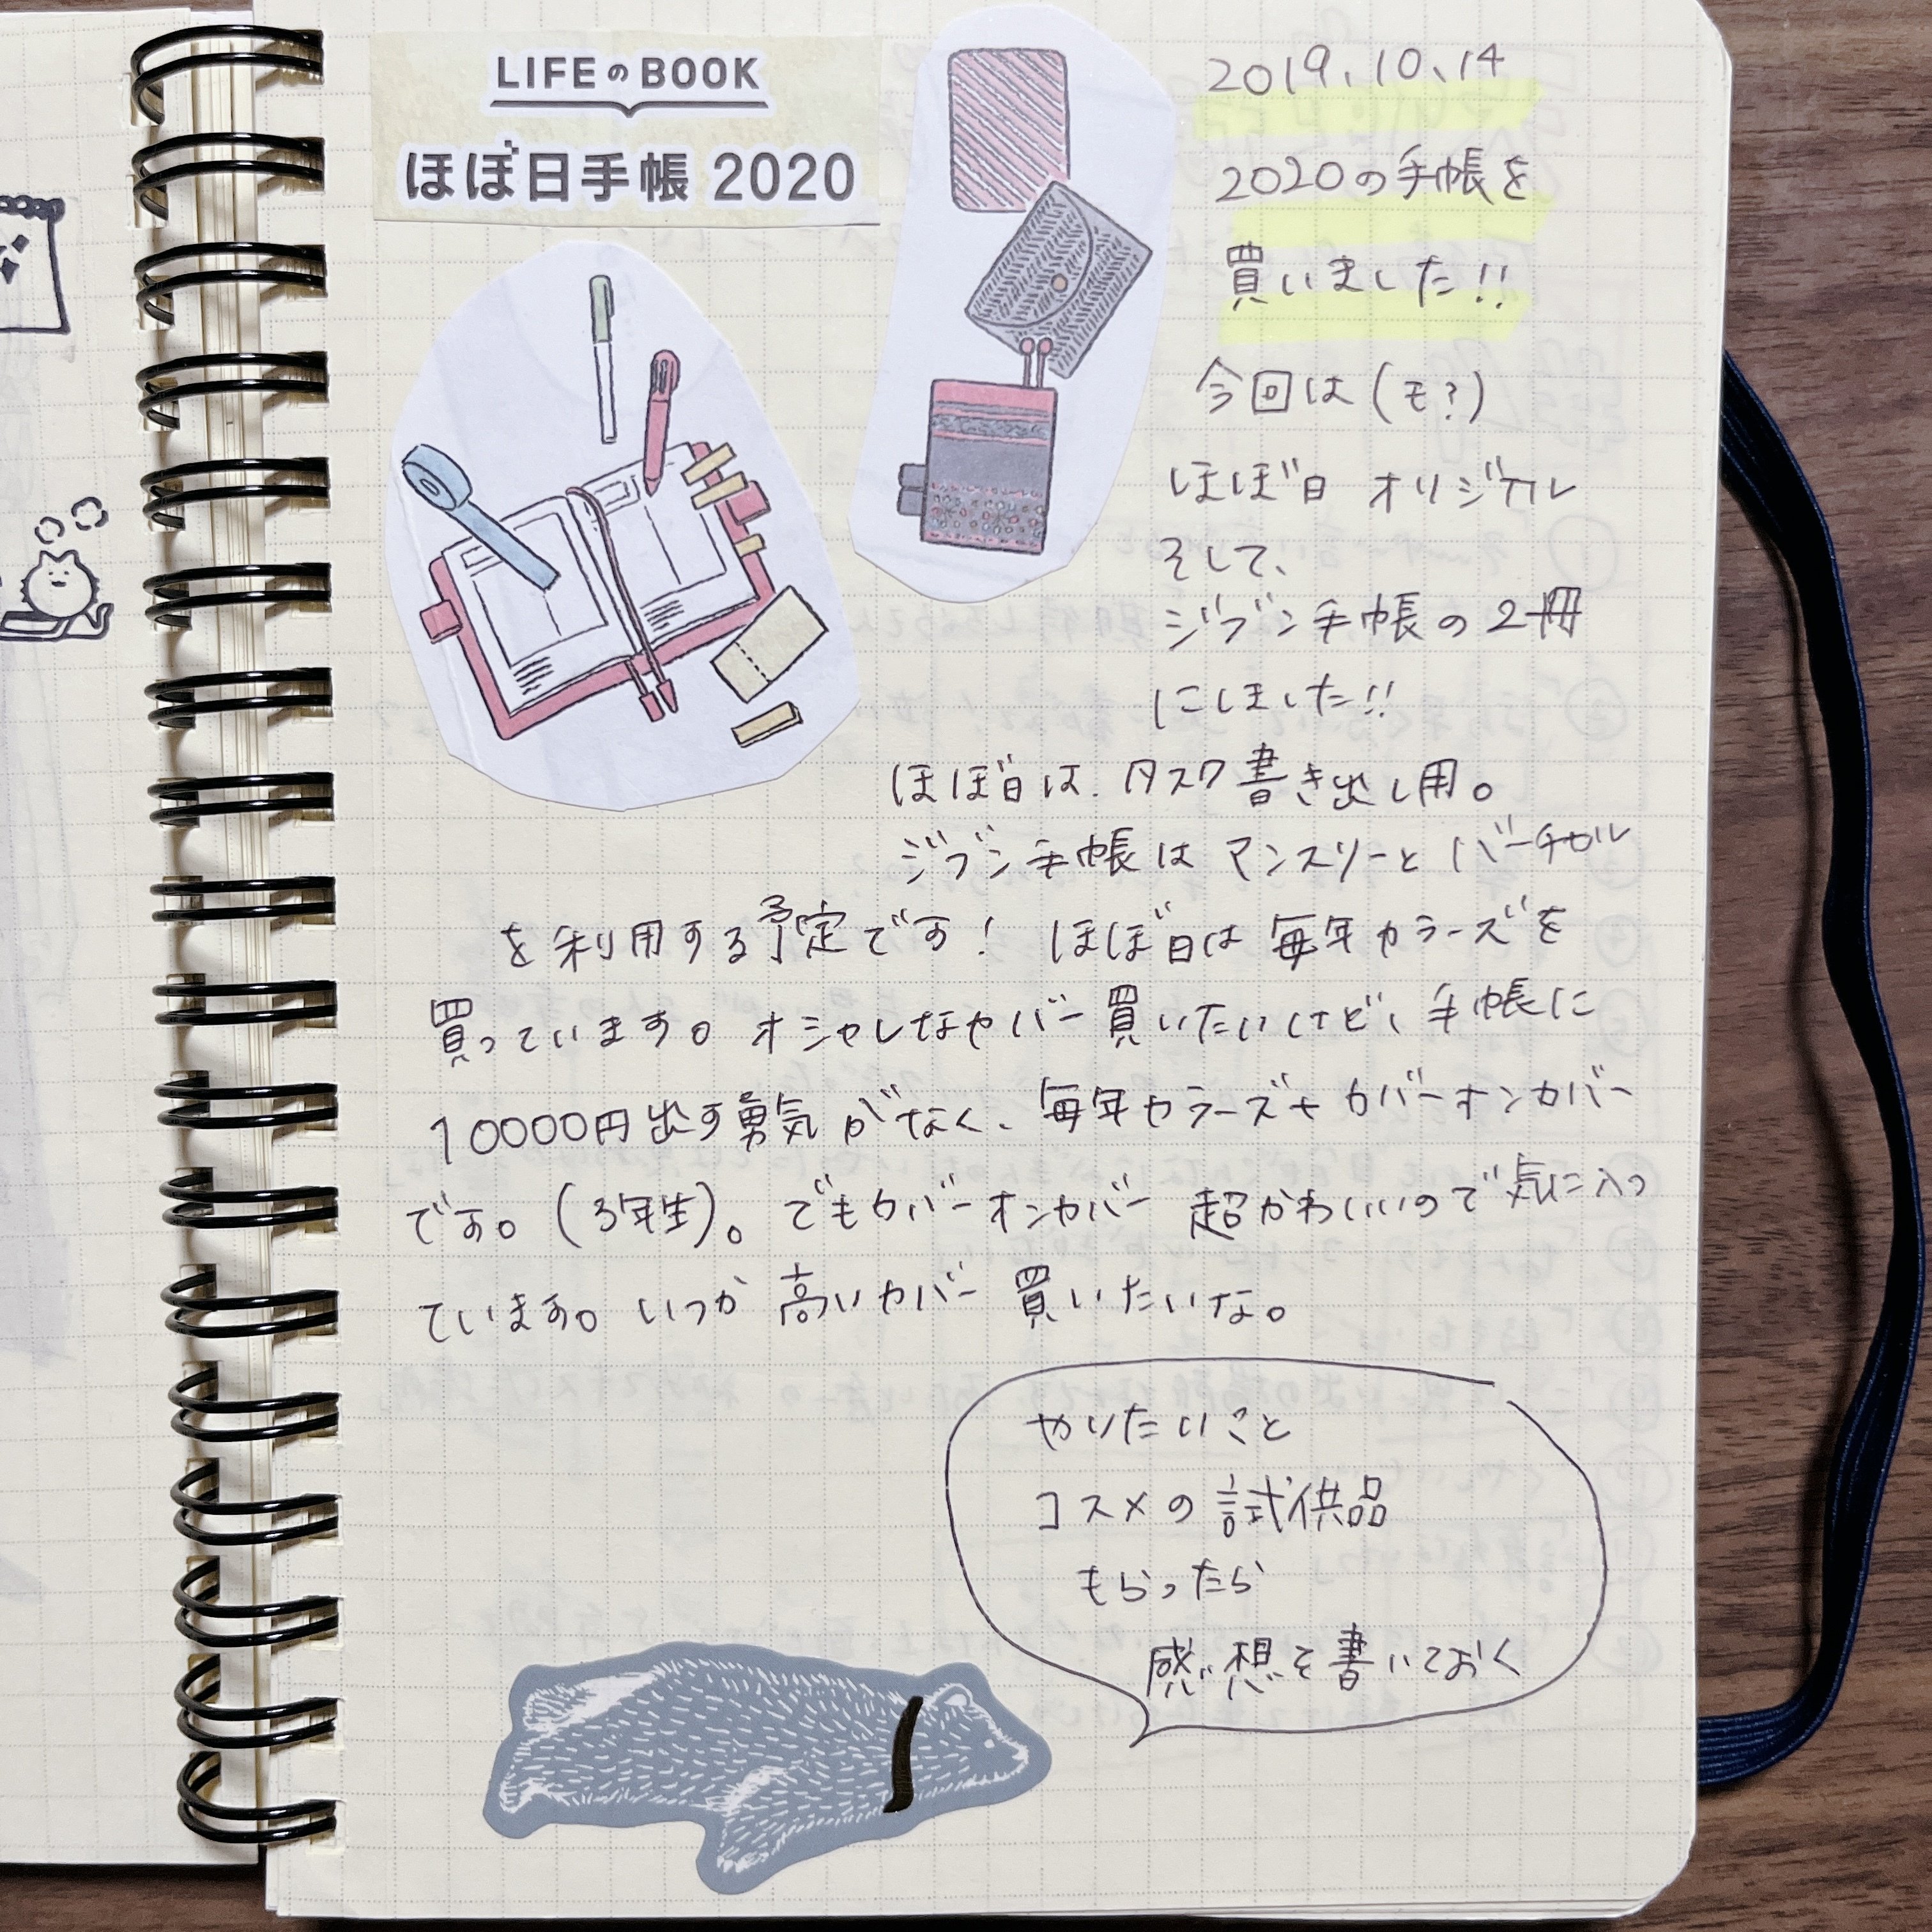 LIFEのBOOK
ほぼ日手帳 2020
2019.10.14
2020の手帳を
買いました!!
今回は(モ?)
ほぼ日 オリジナル
そして、
ジブン手帳の2冊
にしました!!
ほぼ日は、タスク書き出し用。
ジブン手帳はマンスリーとバーチカル
を利用する予定です! ほぼ日は毎年カラーズを
買っています。オシャレなカバー買いたいけど、手帳に
10000円出す勇気がなく、毎年カラーズ+カバーオンカバー
です。(3年生)。でもカバーオンカバー 超かわいいので気に入っ
ています。いつか高いカバー買いたいな。
やりたいこと
コスメの試供品
もらったら
感想を書いておく